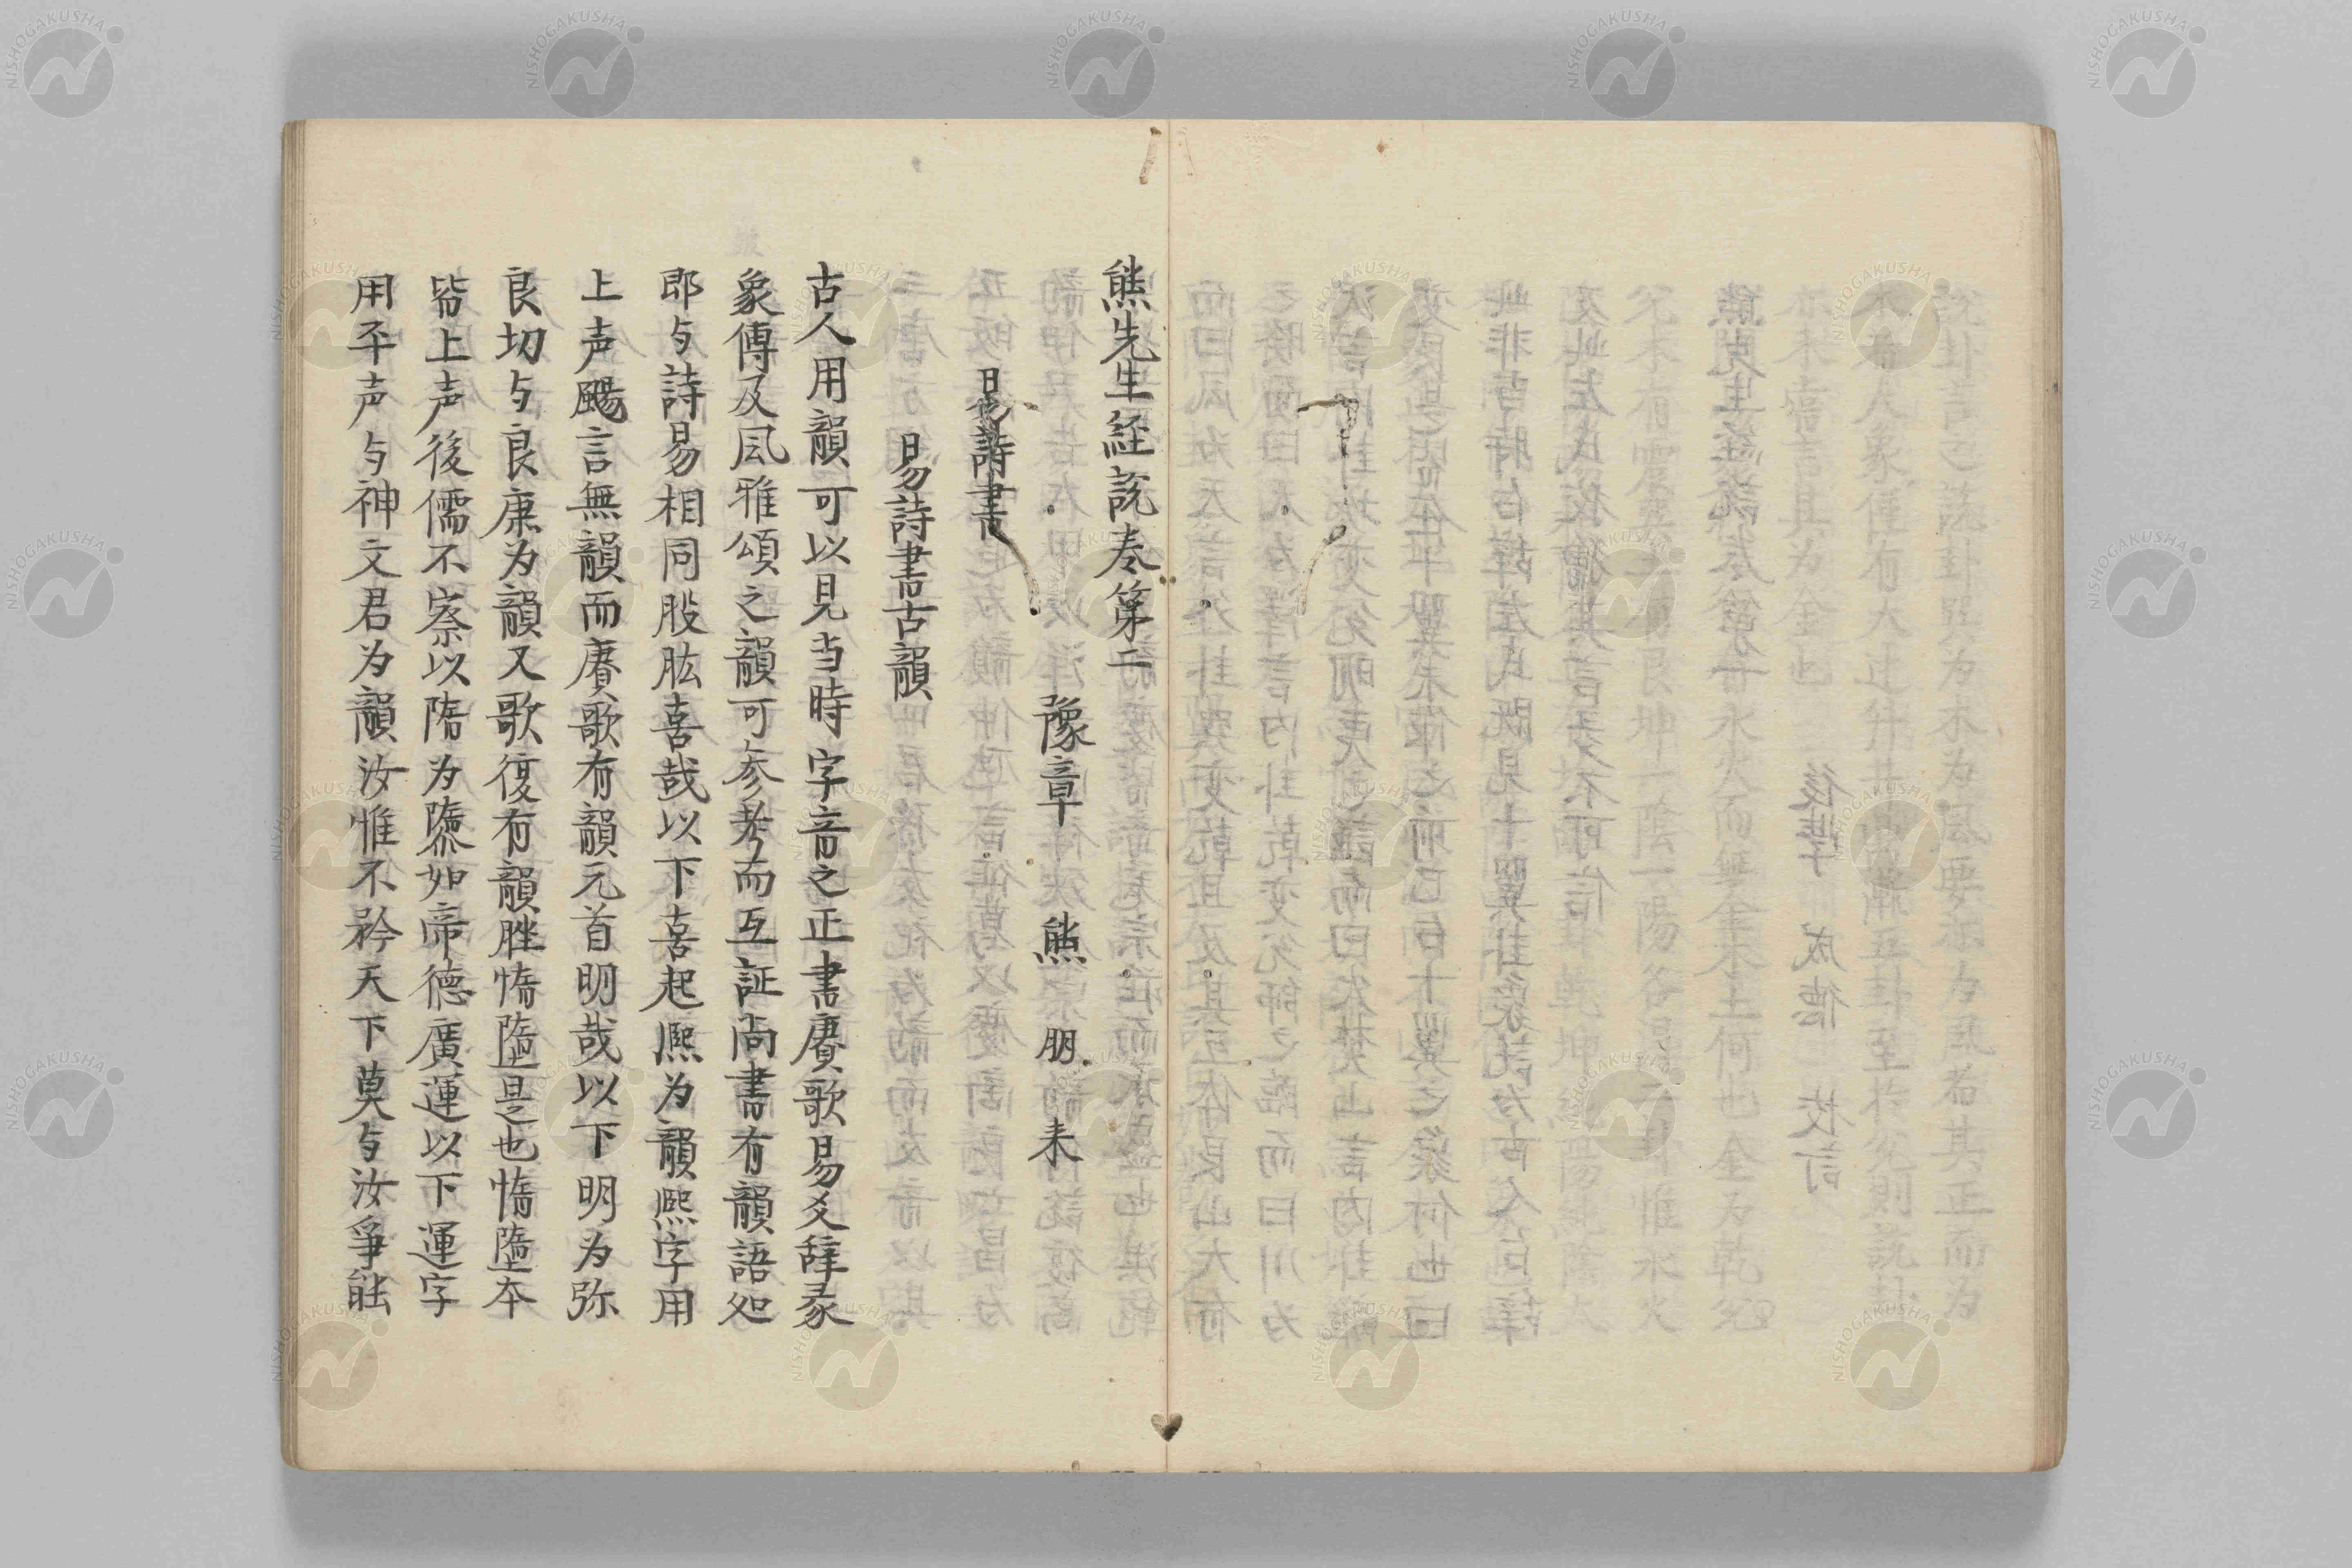 熊先生経説巻第二
豫章 熊 朋 来
易詩書
易詩書古韻
古人用韻可以見当時字音之正書賡歌易爻辞彖
象傳及風雅頌之韻可参考而互証尚書有韻語処
郎与詩易相同股肱喜哉以下喜起熈为韻熈字用
上声颺言無韻而賡歌有韻元首明哉以下明为弥
良切与良康为韻又歌復有韻脞惰墮是也惰墮本
皆上声後儒不察以隋为隳如帝德廣運以下運字
用平声与神文君为韻汝惟不矜天下莫与汝爭能
NISHOGAKUSHA